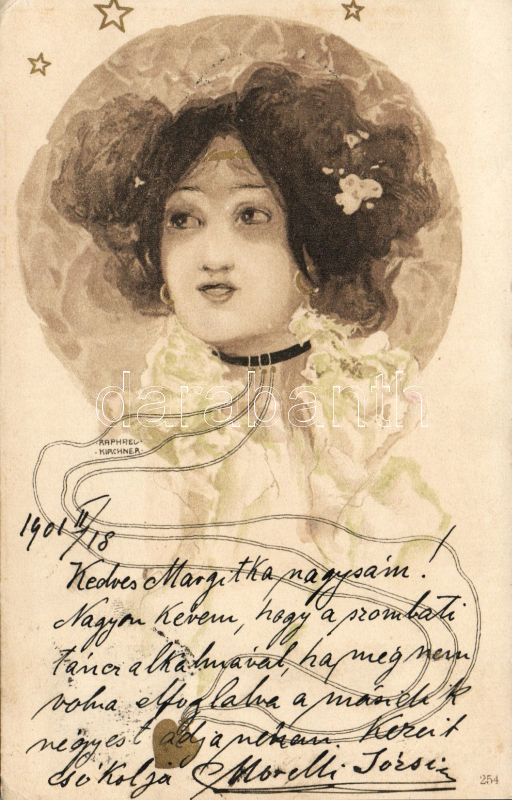 darabanth
RAPHAEL
KIRCHNER
1901 II/18
Kedves Margitka nagysám!
Nagyon kérem, hogy a szombati
tánczalkalmával, ha még nem
volna elfoglalva a második
négyest adja nekem. Kezeit
csókolja Morelli Józsi
254